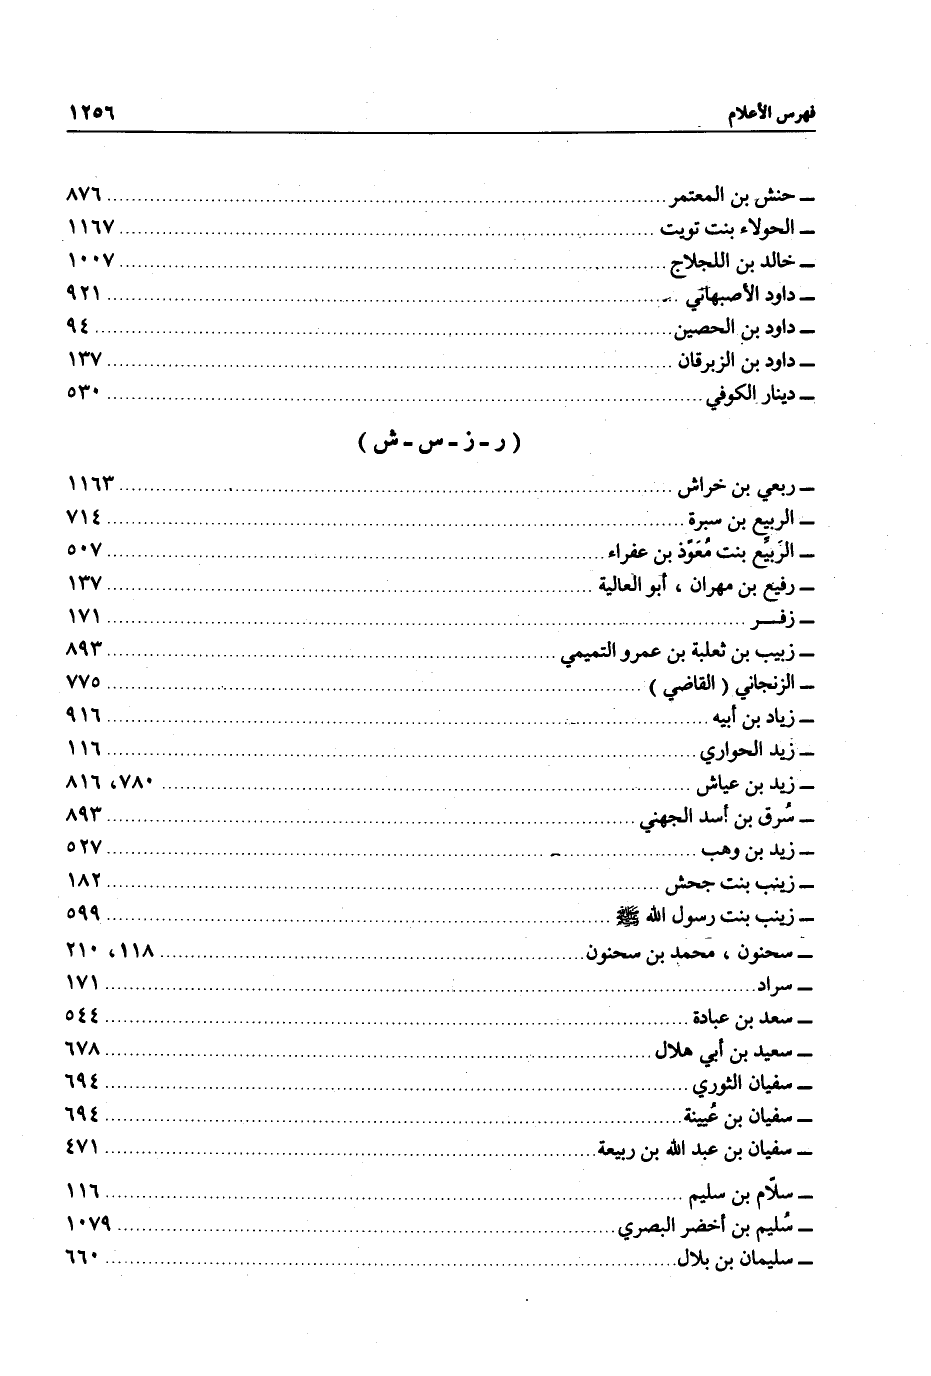 فهرس الأعلام ١٢٥٦
ــ حنش بن المعتمر ........ ٨٧٦
ــ الحولاء بنت تويت ........ ١١٦٧
ــ خالد بن اللجلاج ........ ١٠٠٧
ــ داود الأصبهاني ........ ٩٢١
ــ داود بن الحصين ........ ٩٤
ــ داود بن الزبرقان ........ ١٣٧
ــ دينار الكوفي ........ ٥٣٠
( ر - ز - س - ش )
ــ ربعي بن خراش ........ ١١٦٣
ــ الربيع بن سبرة ........ ٧١٤
ــ الرَبيِّع بنت مُعَوّذ بن عفراء ........ ٥٠٧
ــ رفيع بن مهران ، أبو العالية ........ ١٣٧
ــ زفـــر ........ ١٧١
ــ زبيب بن ثعلبة بن عمرو التميمي ........ ٨٩٣
ــ الزنجاني ( القاضي ) ........ ٧٧٥
ــ زياد بن أبيه ........ ٩١٦
ــ زيد الحواري ........ ١١٦
ــ زيد بن عياش ........ ٧٨٠، ٨١٦
ــ سُرق بن أسد الجهني ........ ٨٩٣
ــ زيد بن وهب ........ ٥٢٧
ــ زينب بنت جحش ........ ١٨٢
ــ زينب بنت رسول الله ﷺ ........ ٥٩٩
ــ سحنون ، محمد بن سحنون ........ ١١٨، ٢١٠
ــ سراد ........ ١٧١
ــ سعد بن عبادة ........ ٥٤٤
ــ سعيد بن أبي هلال ........ ٦٧٨
ــ سفيان الثوري ........ ٦٩٤
ــ سفيان بن عُيينة ........ ٦٩٤
ــ سفيان بن عبد الله بن ربيعة ........ ٤٧١
ــ سلّام بن سليم ........ ١١٦
ــ سُليم بن أخضر البصري ........ ١٠٧٩
ــ سليمان بن بلال ........ ٦٦٠